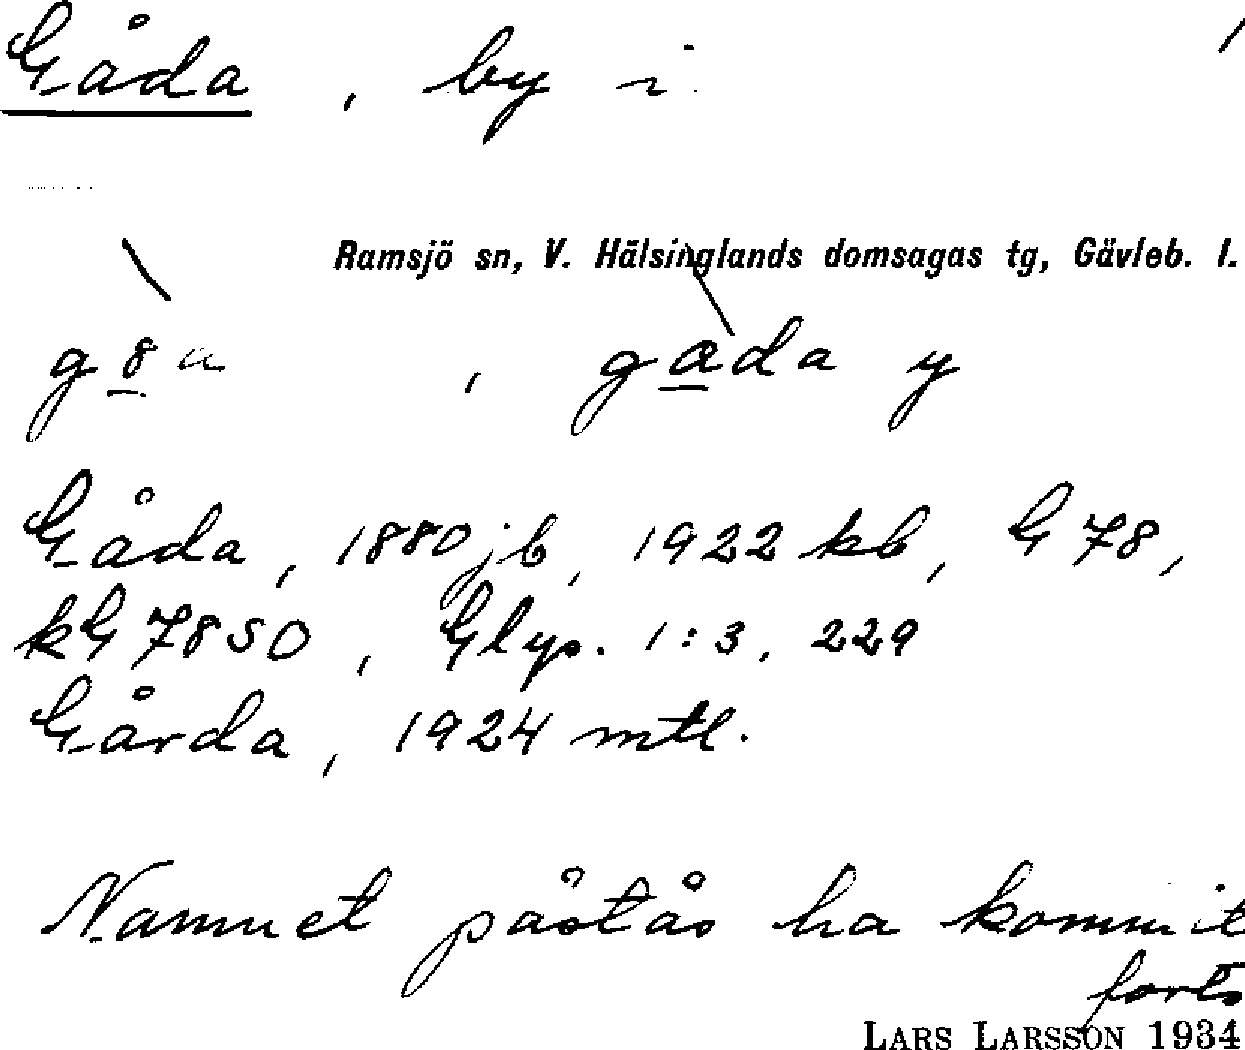 Gåda, by i 1
Ramsjö sn, V. Hälsinglands domsagas tg, Gävleb. l.
g8a, gada y
Gåda, 1880 jb, 1922 kb, G 78,
kG 7850, Glyps. 1:3, 229
Gårda, 1924 mtl.
Namnet påstås ha kommit
forts
LARS LARSSON 1934